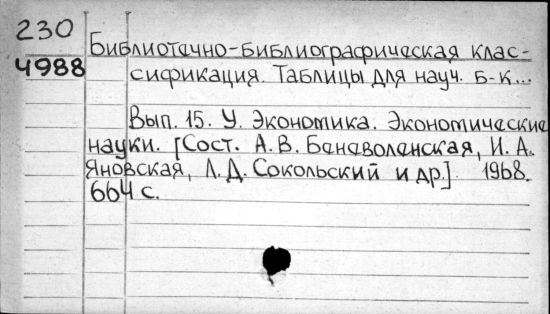 230
Библиотечно-библиографическая клас-
4988
сификация. Таблицы для науч. б-к...
Вып. 15. У. Экономика. Экономические
науки. [Сост. А.В. Беневоленская, И.А.
Яновская, Л.Д. Сокольский и др.] 1968.
664 с.